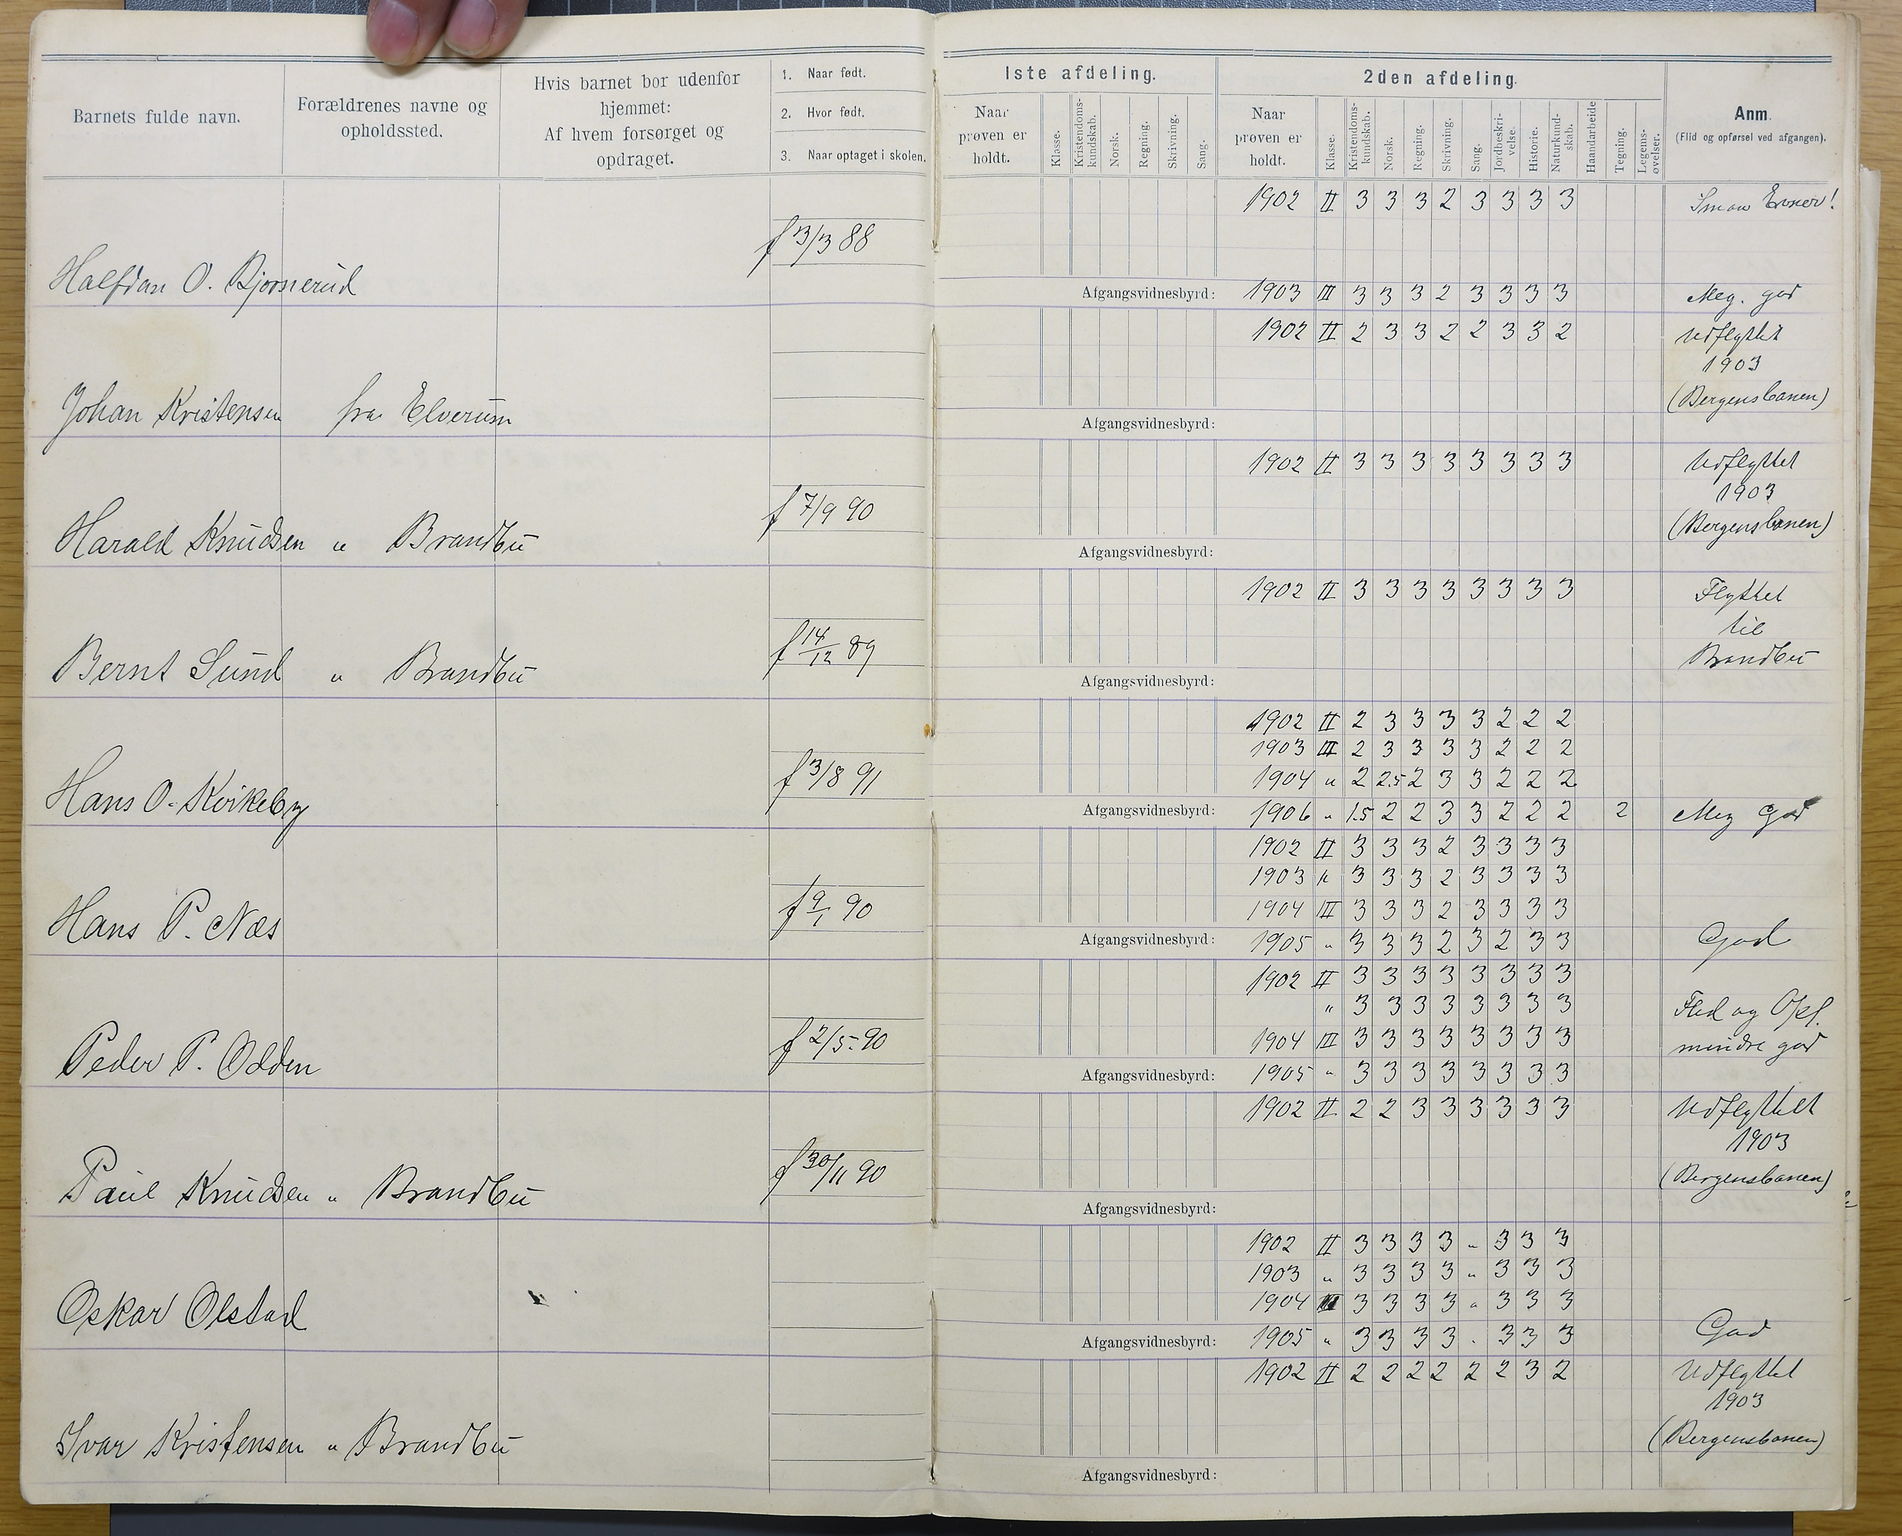 Barnets fulde navn.
Forældrenes navne og opholdssted.
Hvis barnet bor udenfor hjemmet: Af hvem forsørget og opdraget.
1. Naar født.
2. Hvor født.
3. Naar optaget i skolen.
1ste afdeling.
Naar prøven er holdt.
Klasse.
Kristendomskundskab.
Norsk.
Regning.
Skrivning.
Sang.
2den afdeling.
Naar prøven er holdt.
Klasse.
Kristendomskundskab.
Norsk.
Regning.
Skrivning.
Sang.
Jordbeskrivelse.
Historie.
Naturkundskab.
Haandarbeide
Tegning.
Legemsøvelser.
Anm.
(Flid og opførsel ved afgangen).
1902 II 3 3 3 2 3 3 3 3
f 3/3 88
Halfdan O.
Afgangsvidnesbyrd: 1903 III 3 3 3 2 3 3 3 3 Meg. god
1902 II 2 3 3 2 2 3 3 2 Udflyttet
1903
(Bergensbanen)
Johan Kristensen fra Elverum
Afgangsvidnesbyrd:
1902 II 3 3 3 3 3 3 3 3 Udflyttet
1903
(Bergensbanen)
f 7/9 90
Harald Knudsen " Brandbu
Afgangsvidnesbyrd:
1902 II 3 3 3 3 3 3 3 3 Flyttet
til
Brandbu
f 14/12 89
Bernt Sund " Brandbu
Afgangsvidnesbyrd:
1902 II 2 3 3 3 3 2 2 2
1903 III 2 3 3 3 3 2 2 2
1904 " 2 2.5 2 3 3 2 2 2
f 3/8 91
Hans O. Kvikeby
Afgangsvidnesbyrd: 1906 " 1.5 2 2 3 3 2 2 2 2 Meg god
1902 II 3 3 3 2 3 3 3 3
1903 " 3 3 3 2 3 3 3 3
1904 III 3 3 3 2 3 3 3 3
f 9/1 90
Hans P. Næs
Afgangsvidnesbyrd: 1905 " 3 3 3 2 3 2 3 3 God
1902 II 3 3 3 3 3 3 3 3
" 3 3 3 3 3 3 3 3 Flid og Opf.
1904 III 3 3 3 3 3 3 3 3 mindre god
f 2/5-90
Peder P. Odden
Afgangsvidnesbyrd: 1905 " 3 3 3 3 3 3 3 3
1902 II 2 2 3 3 3 3 3 3 Udflyttet
1903
(Bergensbanen)
f 30/11 90
Paul Knudsen " Brandbu
Afgangsvidnesbyrd:
1902 II 3 3 3 3 " 3 3 3
1903 " 3 3 3 3 " 3 3 3
1904 III 3 3 3 3 " 3 3 3
Oskar Olstad
Afgangsvidnesbyrd: 1905 " 3 3 3 3 " 3 3 3 God
1902 II 2 2 2 2 2 2 3 2 Udflyttet
1903
(Bergensbanen)
Ivar Kristensen " Brandbu
Afgangsvidnesbyrd: